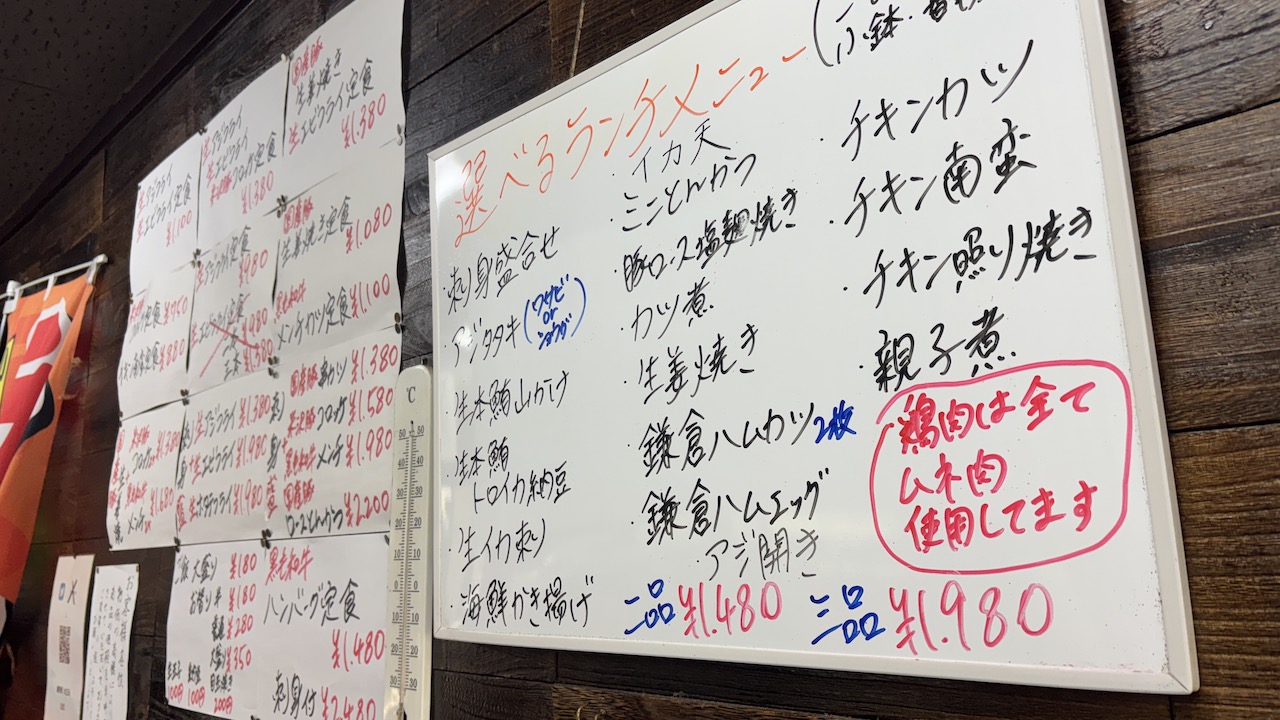 選べるランチメニュー
・刺身盛合せ
・アジタタキ(ワサビ
or
ショウガ)
・生本鮪山かけ
・生本鮪
トロイカ納豆
・生イカ刺
・海鮮かき揚げ
・イカ天
・ミニとんかつ
・豚ロース塩麹焼き
・カツ煮
・生姜焼き
・鎌倉ハムカツ2枚
・鎌倉ハムエッグ
・アジ開き
・チキンカツ
・チキン南蛮
・チキン照り焼き
・親子煮
鶏肉は全て
ムネ肉
使用してます
二品¥1.480
三品¥1.980
国産豚
生姜焼き
生エビフライ定食
¥1.380
生アジフライ
生エビフライ
コロッケ定食
¥1.380
生アジフライ
生エビフライ定食
¥1.100
国産豚
生姜焼き定食
¥1.080
黒毛和牛
メンチカツ定食
¥1.100
国産豚
¥1.380
コロッケ
¥1.580
黒毛和牛
メンチ
¥1.980
国産豚
ロースとんかつ
¥2.200
生アジフライ
¥1.380
生エビフライ
¥1.980
生ホタテフライ
¥1.980
大盛り
¥180
¥180
¥280
¥350
黒毛和牛
ハンバーグ定食
¥1.480
刺身付
¥2.480
100円
100円
200円
℃
50
40
30
20
10
0
10
20
30